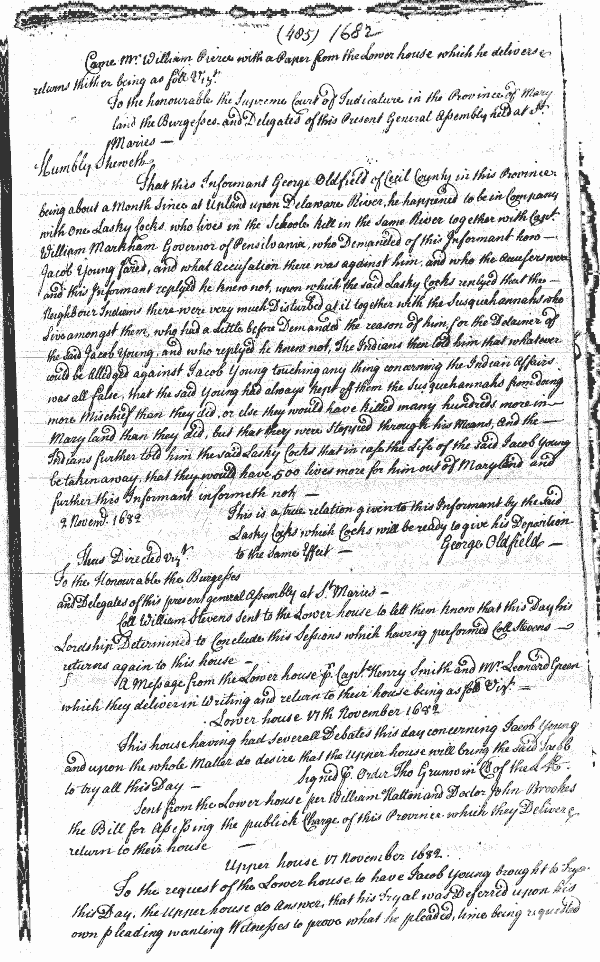 (485) 1682
Came Mr. William Pierce with a Paper from the Lower house which he delivers &
returns thither being as foll Vizt.
To the honourable the Supreme Court of Judicature in the Province of Mary
land the Burgesses and Delegates of this Present General Assembly held at St.
Maries —
Humbly Sheweth
That this Informant George Oldfield of Cecil County in this Province
being about a Month Since at Upland upon Delaware River, he happened to be in Company
with One Lasky Cocks, who lives in the Schoole kell in the Same River together with Capt.
William Markham Governor of Pensilvania, who Demanded of this Informant how —
Jacob Young fared, and what Accusation there was against him, and who the Accusers were
and this Informant replyed he knew not, upon which the said Lasky Cocks replyed that the —
Neighbour Indians there were very much Disturbed at it together with the Susquehannahs who
Live amongst them, who had a Little before Demanded the reason of him, for the Detainer of
the said Jacob Young, and who replyed he knew not, The Indians then told him that whatever
could be Alledged against Jacob Young touching any thing concerning the Indian Affairs
was all false, that the said Young had always kept off them the Susquehannahs from doing
more Mischief than they did, or else they would have killed many hundreds more in —
Maryland than they did, but that they were Stopped through his Means, And the —
Indians further told him the said Lasky Cocks that in case the Life of the said Jacob Young
be taken away, that they would have 500 lives more for him out of Maryland and
further this Informant informeth not —
2 Novemb. 1682 This is a true relation given to this Informant by the said
Lasky Cocks which Cocks will be ready to give his Deposition
to the Same Effect — George Oldfield —
Thus Directed Vizt.
To the Honourable the Burgesses
and Delegates of this present general Assembly at St. Maries —
Coll William Stevens sent to the Lower house to lett them know that this Day his
Lordship Determined to Conclude this Sessions which having performed Coll Stevens —
returns again to this house —
A Message from the Lower house p. Capt. Henry Smith and Mr. Leonard Green
which they deliver in Writing and return to their house being as foll Vizt. —
Lower house 17th November 1682
This house having had severall Debates this day concerning Jacob Young
and upon the whole Matter do desire that the Upper house will bring the said Jacob
to try all this Day — Signed p. Order Tho Grunwin Cl of the L H.
Sent from the Lower house per William Hatton and Doctor John Brookes
the Bill for Assessing the publick Charge of this Province which they Deliver &
return to their house —
Upper house 17 November 1682.
To the request of the Lower house to have Jacob Young brought to Tryal
this Day, the Upper house do Answer, that his Tryal was Deferred upon his
own pleading wanting Witnesses to prove what he pleaded, time being requested